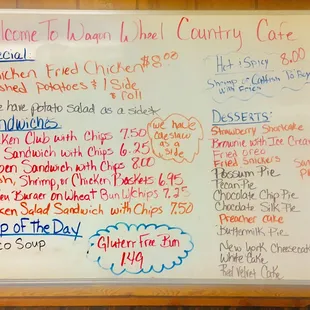 elcome To Wagon Wheel Country Cafe
ecial
icken Fried Chicken $8.00
shed Potatoes & 1 Side
& roll
e have potato salad as a side
ndwiches
ken Club with Chips 7.50
Sandwich with Chips 6.25
ben Sandwich with Chips 8.00
sh, Shrimp, or Chicken Baskets 6.95
en Burger on Wheat Bun W/chips 7.25
ken Salad Sandwich with Chips 7.50
we have
coleslaw
as a
side
p of the Day
co Soup
Gluten Free Bun
1.49
Hot & Spicy 8.00
Shrimp or Catfish To
with Fries
DESSERTS:
Strawberry Shortcake
Brownie with Ice Cream
Fried Oreo
Fried Snickers
Possum Pie
Pecan Pie
Chocolate Chip Pie
Chocolate Silk Pie
Preacher Cake
Buttermilk Pie
New York Cheesecake
White Cake
Red Velvet Cake